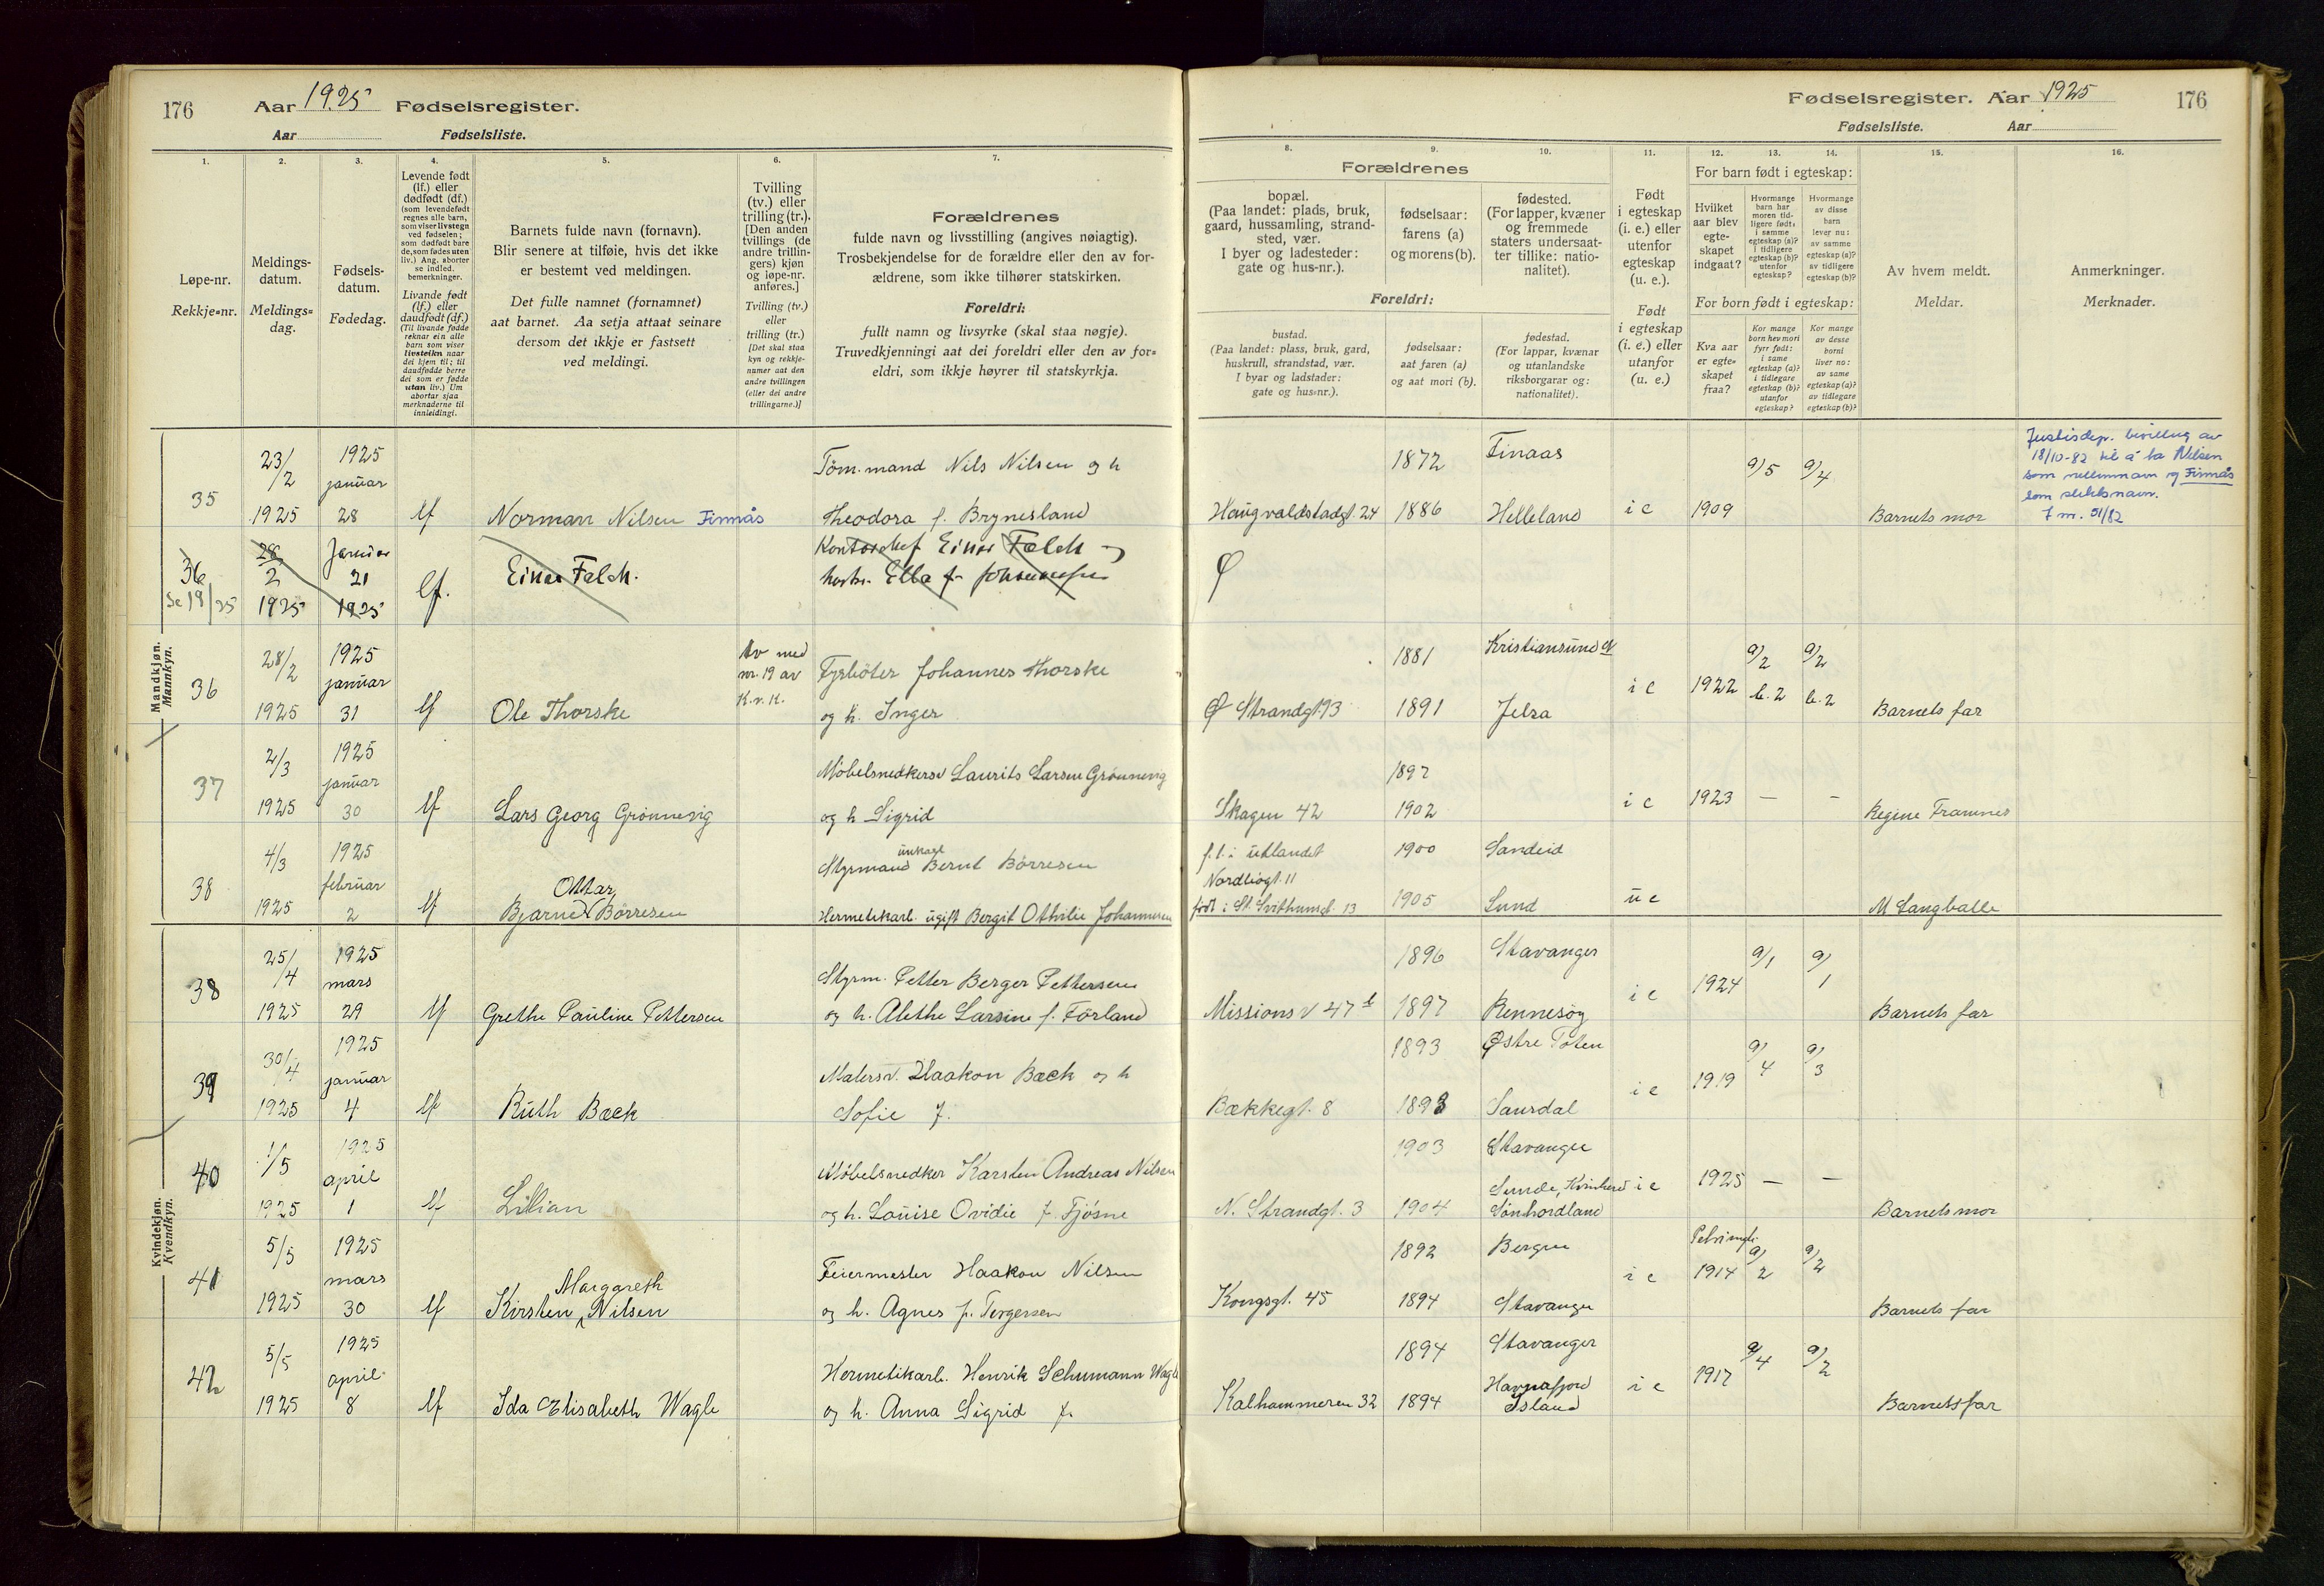 176
Aar 1925 Fødselsregister.
Aar Fødselsliste.
1.
2.
3.
4.
5.
6.
7.
Løpe-nr.
Rekkje=nr.
Meldings-
datum.
Meldings=
dag.
Fødsels-
datum.
Fødedag.
Levende født
(lf.) eller
dødfødt (df.)
(som levendefødt
regnes alle barn,
som viser livstegn
ved fødselen;
som dødfødt bare
de, som fødes uten
liv.) Ang. aborter
se indled.
bemerkninger.
Livande født
(lf.) eller
daudfødt (df.)
(Til livande fødde
reknar ein alle
barn som viser
livsteikn naar
dei kjem til; til
daudfødde berre
dei som er fødde
utan liv.) Um
abortar sjaa
merknaderne til
innleidingi.
Barnets fulde navn (fornavn).
Blir senere at tilføie, hvis det ikke
er bestemt ved meldingen.
Det fulle namnet (fornamnet)
aat barnet. Aa setja attaat seinare
dersom det ikkje er fastsett
ved meldingi.
Tvilling
(tv.) eller
trilling (tr.).
[Den anden
tvillings (de
andre trillin-
gers) kjøn
og løpe-nr.
anføres.]
Tvilling (tv.)
eller
trilling (tr.)
[Det skal staa
kyn og rekkje-
numer aat den
andre tvillingen
(eller dei andre
trillingarne.)]
Forældrenes
fulde navn og livsstilling (angives nøiagtig).
Trosbekjendelse for de forældre eller den av for-
ældrene, som ikke tilhører statskirken.
Foreldri:
fullt namn og livsyrke (skal staa nøgje).
Truvedkjenningi aat dei foreldri eller den av for=
eldri, som ikkje høyrer til statskyrkja.
Mandkjøn.
Mannkyn.
35
23/2
1925
1925
januar
28
lf
Norman Nilsen Finnås
Tøm.mand Nils Nilsen og h
Theodora f. Brynesland
36
Se 19/25
28
2
1925
Januar
21
1925
lf.
Einar Falch.
Kontorchef Einar Falch og
hustr. Ella f. Johannesen
36
28/2
1925
1925
januar
31
lf
Ole Thorske
tv med
nr. 19 av
K.v.K.
Fyrbøter Johannes Thorske
og h. Inger
37
2/3
1925
1925
januar
30
lf
Lars Georg Grönnevig
Möbelsnedkersv Laurits Larsen Grönnevig
og h Sigrid
38
4/3
1925
1925
februar
2
lf
Ottar
Bjarne Börresen
unkarl
Styrmand Bernt Börresen
Hermetikarb. ugift Bergit Othilie Johannesen
Kvindekjøn.
Kvendkyn.
38
25/4
1925
1925
mars
29
lf
Grethe Pauline Pettersen
Styrm. Petter Berger Pettersen
og h. Alethe Larsine f. Förland
39
30/4
1925
1925
januar
4
lf
Ruth Bæck
Malersv. Haakon Bæck og h
Sofie f.
40
1/5
1925
1925
april
1
lf
Lillian
Möbelsnedker Karsten Andreas Nilsen
og h. Louise Ovidie f. Tjösne
41
5/5
1925
1925
mars
30
lf
Margareth
Kirsten Nilsen
Feiermester Haakon Nilsen
og h. Agnes f. Torgersen
42
5/5
1925
1925
april
8
lf
Ida Elisabeth Wagle
Hermetikarb. Henrik Schumann Wagle
og h. Anna Sigrid f.
Fødselsregister. Aar 1925
176
Fødselsliste. Aar
8.
9.
10.
11.
12.
13.
14.
15.
16.
Forældrenes
bopæl.
(Paa landet: plads, bruk,
gaard, hussamling, strand-
sted, vær.
I byer og ladesteder:
gate og hus-nr.).
fødselsaar:
farens (a)
og morens (b).
fødested.
(For lapper, kvæner
og fremmede
staters undersaat-
ter tillike: natio-
nalitet).
Foreldri:
bustad.
(Paa landet: plass, bruk, gard,
huskrull, strandstad, vær.
I byar og ladstader:
gate og hus=nr.).
fødselsaar:
aat faren (a)
og aat mori (b).
fødestad.
(For lappar, kvænar
og utanlandske
riksborgarar og:
nationalitet).
Født
i egteskap
(i. e.) eller
utenfor
egteskap
(u. e.).
Født
i egteskap
(i. e.) eller
utanfor
(u. e.)
For barn født i egteskap:
Hvilket
aar blev
egte-
skapet
indgaat?
Hvormange
barn har
moren tid-
ligere født:
i samme
egteskap (a)?
i tidligere
egteskap (b)?
utenfor
egteskap?
Hvormange
av disse
barn
lever nu:
av samme
egteskap (a)?
av tidligere
egteskap (b)?
For born født i egteskap:
Kva aar
er egte-
skapet
fraa?
Kor mange
born hev mori
fyrr født:
i same
egteskap (a)?
i tidlegare
egteskap (b)?
utanfor
egteskap?
Kor mange
av desse
borni
liver no:
av same
egteskap (a)?
av tidlegare
egteskap (b)?
Av hvem meldt.
Meldar.
Anmerkninger.
Merknader.
Haugvaldstadgt. 24
1872
1886
Finaas
Helleland
i e
1909
a/5
a/4
Barnets mor
Justisdep. bevilling av
18/10-82 til å ta Nilsen
som mellomnavn og Finnås
som slektsnavn.
J nr. 51/82
Ø
Ø Strandgt. 93
1881
1891
Kristiansund N
Jelsa
i e
1922
a/2
b. 2
a/2
b. 2
Barnets far
Skagen 42
1897
1902
i e
1923
—
—
Regine Framnes
f.t. i utlandet
Nordbøgt. 11
født i St. Svithunsgt. 13
1900
1905
Sandeid
Lund
u e
M Langballe
Missionsv 47 b
1896
1897
Stavanger
Rennesøy
i e
1924
a/1
a/1
Barnets far
Bækkegt. 8
1893
1893
Østre Toten
Saurdal
i e
1919
a/4
a/3
N. Strandgt. 3
1903
1904
Stavanger
Sunde, Kvinherd
Sønhordland
i e
1925
—
—
Barnets mor
Kongsgt. 45
1892
1894
Bergen
Stavanger
i e
Petrimgh.
1914
a/2
a/2
Barnets far
Kalhammeren 32
1894
1894
Stavanger
Havnafjord
Island
i e
1917
a/4
a/2
Barnets far